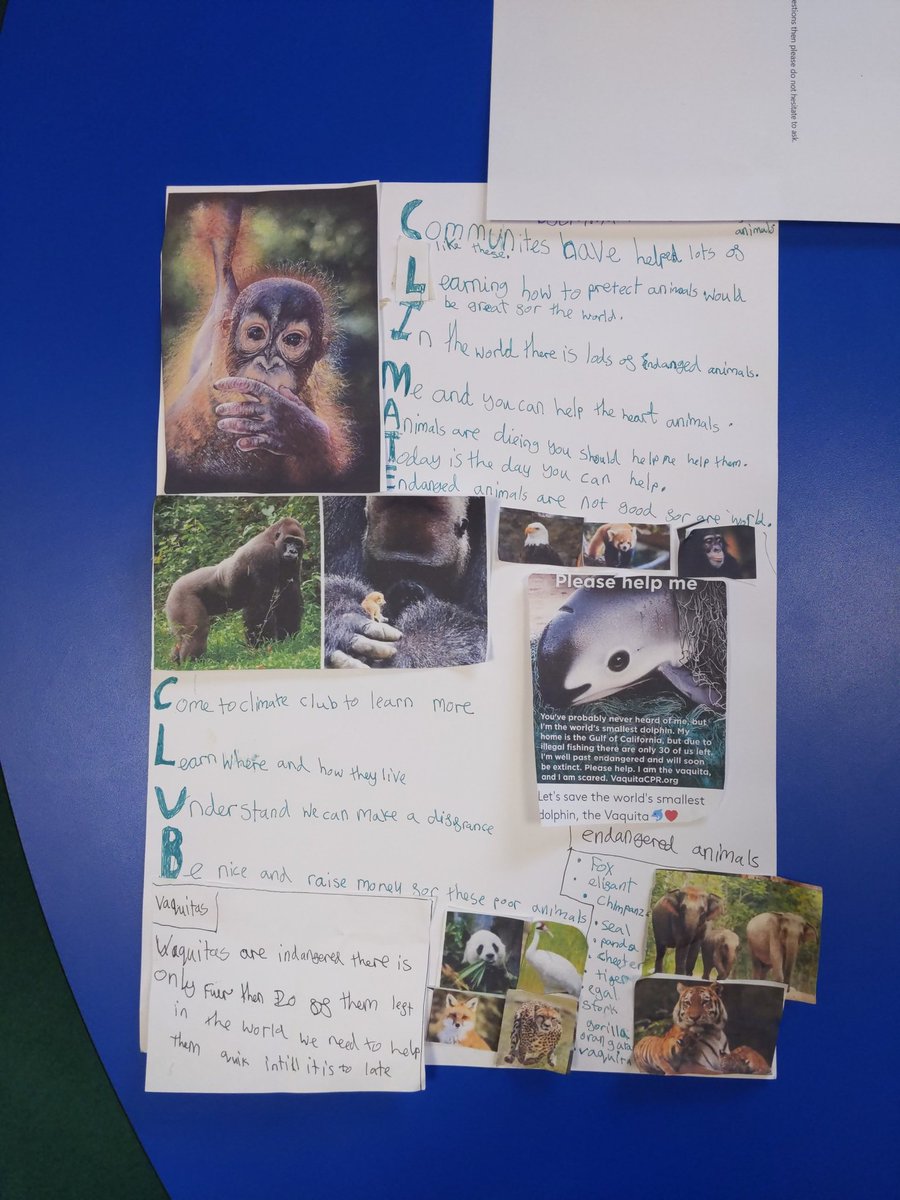 estions then please do not hesitate to ask.
animals
Communites have helped lots of
like these.
Learning how to pretect animals would
be great for the world.
In the world there is lods of Endanged animals.
Me and you can help the heart animals.
Animals are dieing you should help me help them.
Today is the day you can help.
Endanged animals are not good for are world.
Please help me
You've probably never heard of me, but
I'm the world's smallest dolphin. My
home is the Gulf of California, but due to
illegal fishing there are only 30 of us left.
I'm well past endangered and will soon
be extinct. Please help. I am the vaquita,
and I am scared. VaquitaCPR.org
Let's save the world's smallest
dolphin, the Vaquita 🐬❤️
Come to climate club to learn more
Learn where and how they live
Understand we can make a disfrance
Be nice and raise money for these poor animals
Vaquitas
Vaquitas are indangered there is
only fuir then 20 of them left
in the world we need to help
them quik intill it is to late
endangered animals
• Fox
• elifant
• Chimpanz
• seal
• panda
• Cheeter
• tiger
egal
Stork
gorilla
orangata
• vaquita